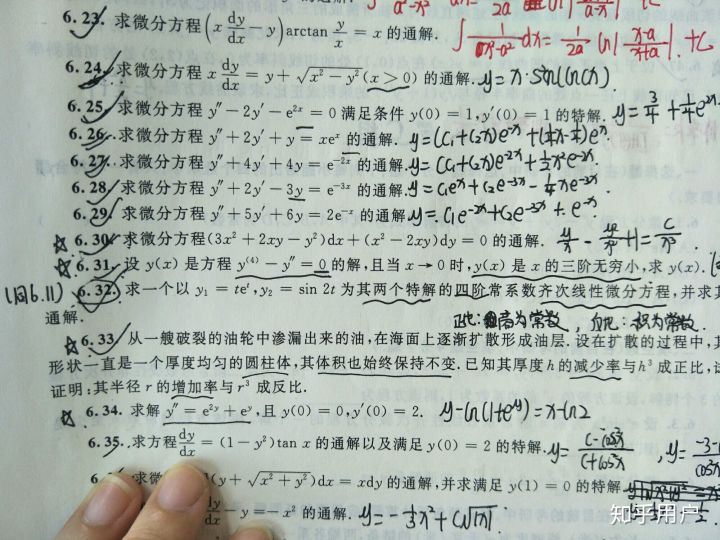 6.23. 求微分方程(x dy/dx − y)arctan y/x = x 的通解.
∫ dx = 1/2a ln|x-a/x+a| + C
6.24. 求微分方程 x dy/dx = y + √(x² − y²) (x > 0) 的通解. y = x·sin(ln(x)
6.25. 求微分方程 y″ − 2y′ − e^{2x} = 0 满足条件 y(0) = 1, y′(0) = 1 的特解. y = 3/4 + 1/4 e^{2x}
6.26. 求微分方程 y″ + 2y′ + y = xe^x 的通解. y = (C₁ + C₂x)e^{-x} + (1/4 x − 1/4)e^x
6.27. 求微分方程 y″ + 4y′ + 4y = e^{−2x} 的通解. y = (C₁ + C₂x)e^{-2x} + 1/2 x²e^{-2x}
6.28. 求微分方程 y″ + 2y′ − 3y = e^{−3x} 的通解. y = C₁e^x + C₂e^{-3x} − 1/4 xe^{-3x}.
6.29. 求微分方程 y″ + 5y′ + 6y = 2e^{−x} 的通解. y = C₁e^{-2x} + C₂e^{-3x} + e^{-x}
☆6.30. 求微分方程(3x² + 2xy − y²)dx + (x² − 2xy)dy = 0 的通解.
☆6.31. 设 y(x) 是方程 y⁽⁴⁾ − y″ = 0 的解,且当 x → 0 时, y(x) 是 x 的三阶无穷小,求 y(x).
(同6.11) 6.32. 求一个以 y₁ = te^t, y₂ = sin 2t 为其两个特解的四阶常系数齐次线性微分方程,并求其
通解.
正比:商为常数, 反比:积为常数.
☆6.33. 从一艘破裂的油轮中渗漏出来的油,在海面上逐渐扩散形成油层. 设在扩散的过程中,其
形状一直是一个厚度均匀的圆柱体,其体积也始终保持不变. 已知其厚度 h 的减少率与 h³ 成正比,试
证明:其半径 r 的增加率与 r³ 成反比.
☆6.34. 求解 y″ = e^{2y} + e^y, 且 y(0) = 0, y′(0) = 2. y − ln(1+e^y) = x − ln2
6.35. 求方程 dy/dx = (1 − y²)tan x 的通解以及满足 y(0) = 2 的特解.
求微分 (y + √(x² + y²))dx = xdy 的通解,并求满足 y(1) = 0 的特解
dy/dx − y = −x² 的通解. y = −1/3 x² + C√|x|
知乎用户